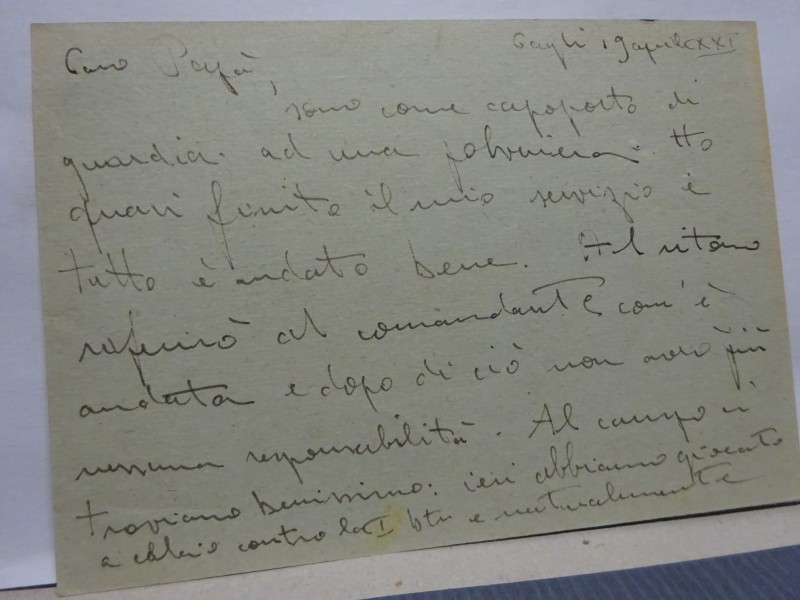 Caro Papà, Gagli 19 aprile XXI
sono come capoposto di
guardia ad una polveriera. Ho
quasi finito il mio servizio e
tutto è andato bene. Al ritorno
riferirò al comandante com'è
andata e dopo di ciò non avrò più
nessuna responsabilità. Al campo ci
troviamo benissimo: ieri abbiamo giocato
a calcio contro la I btr e naturalmente